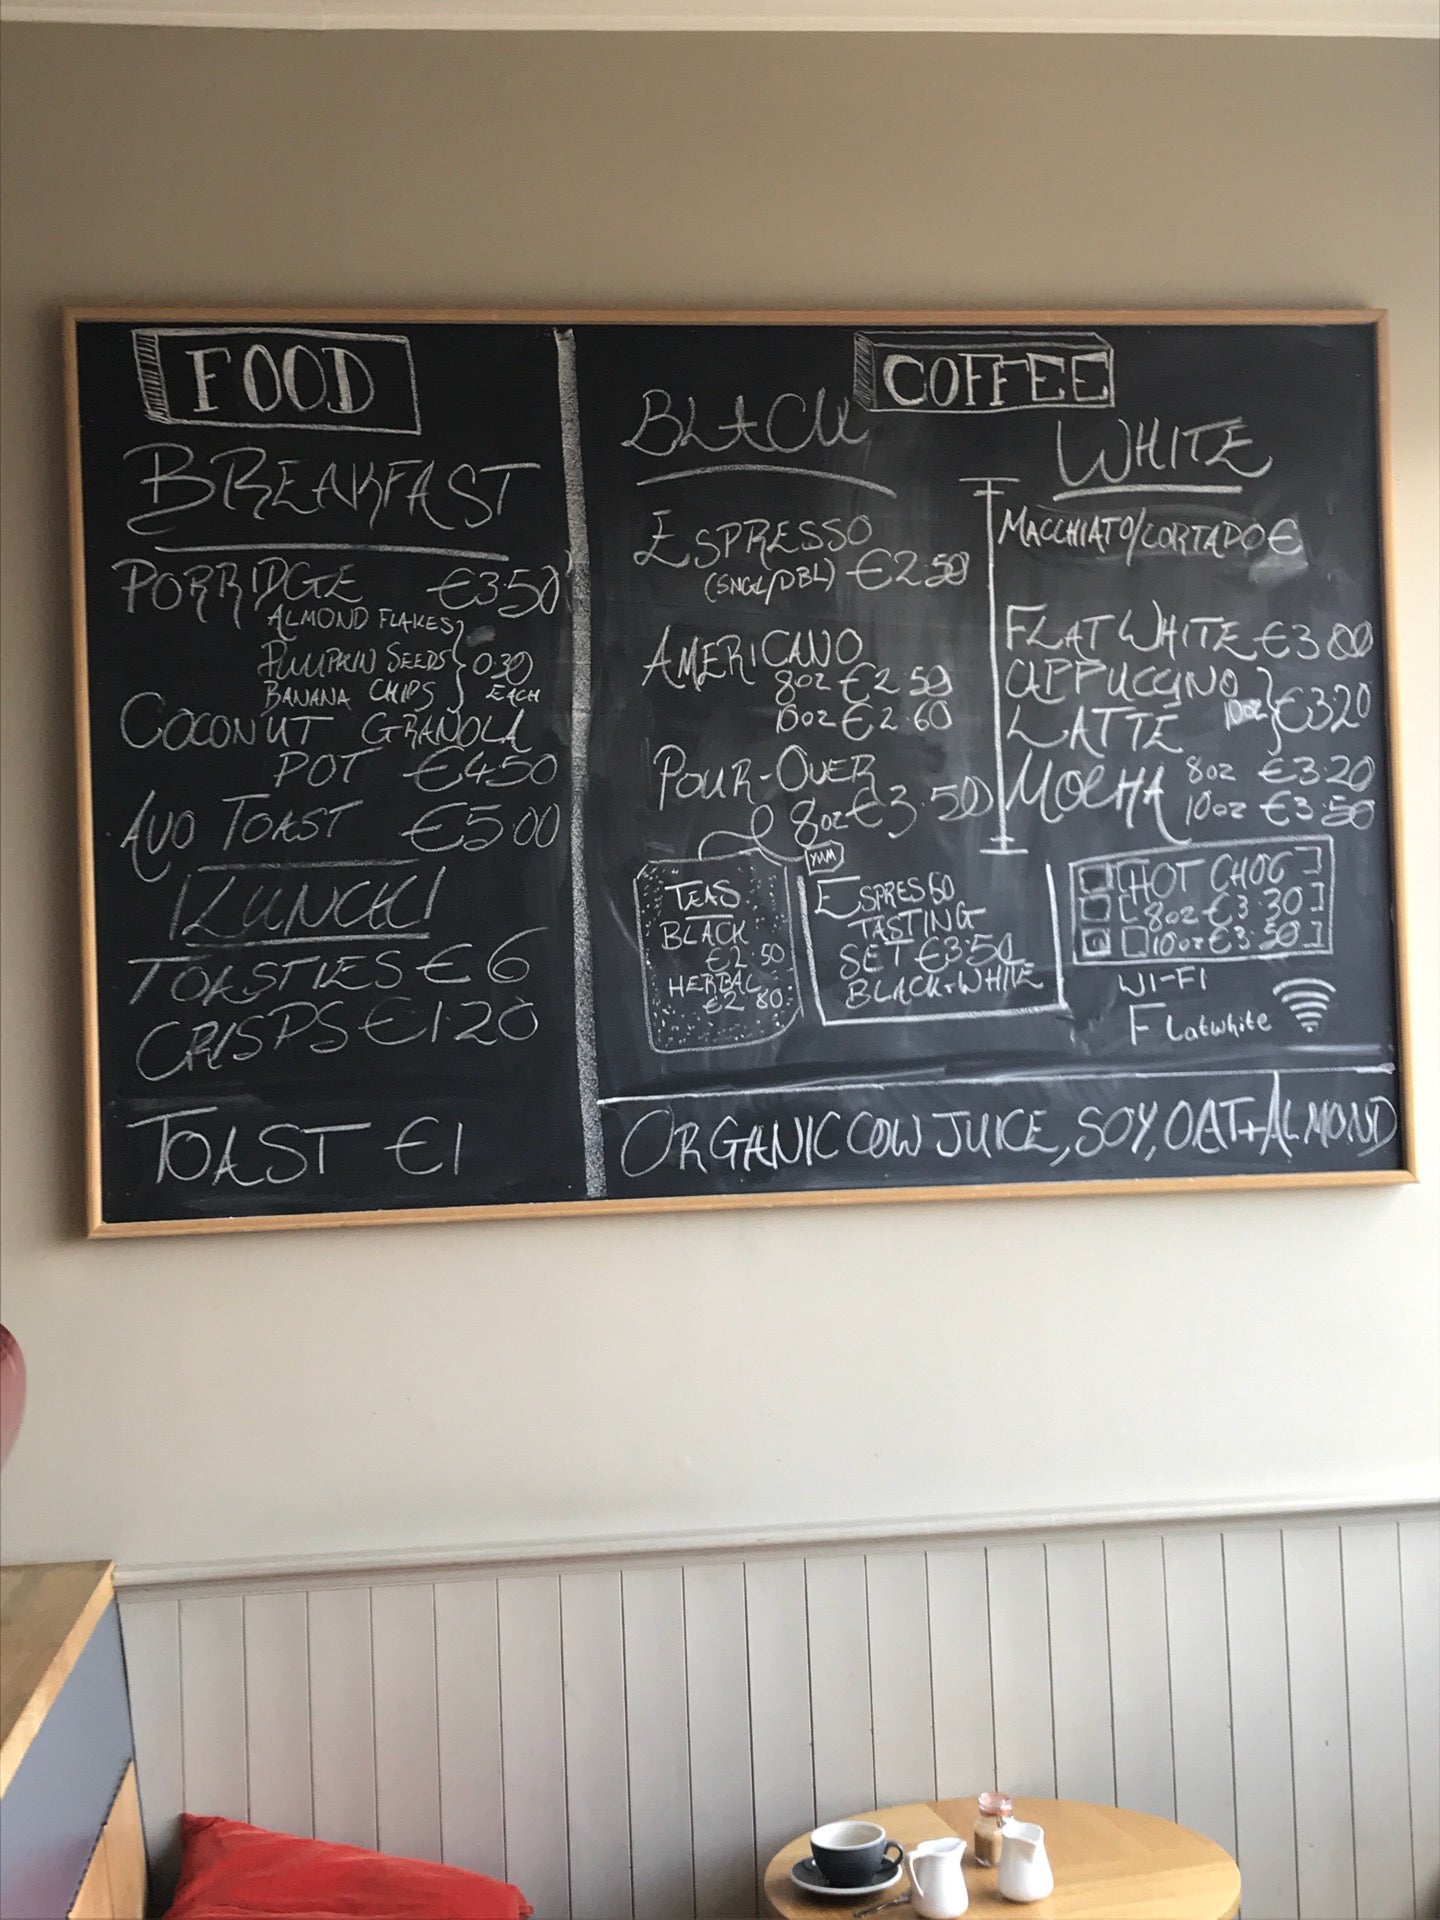 FOOD
BREAKFAST
PORRIDGE €3.50
ALMOND FLAKES
PUMPKIN SEEDS 0.30
BANANA CHIPS EACH
COCONUT GRANOLA
POT €4.50
AVO TOAST €5.00
LUNCH!
TOASTIES €6
CRISPS €1.20
TOAST €1
COFFEE
BLACK
ESPRESSO
(SNGL/DBL) €2.50
AMERICANO
8oz €2.50
10oz €2.60
POUR-OVER
8oz €3.50
WHITE
MACCHIATO/CORTADO €
FLAT WHITE €3.00
CAPPUCCINO
LATTE 10oz €3.20
MOCHA 8oz €3.20
10oz €3.50
YUM
TEAS
BLACK
€2.50
HERBAL
€2.80
ESPRESSO
TASTING
SET €3.50
BLACK+WHITE
HOT CHOC
8oz €3.30
10oz €3.50
WI-FI
Flatwhite
ORGANIC COW JUICE, SOY, OAT+ALMOND